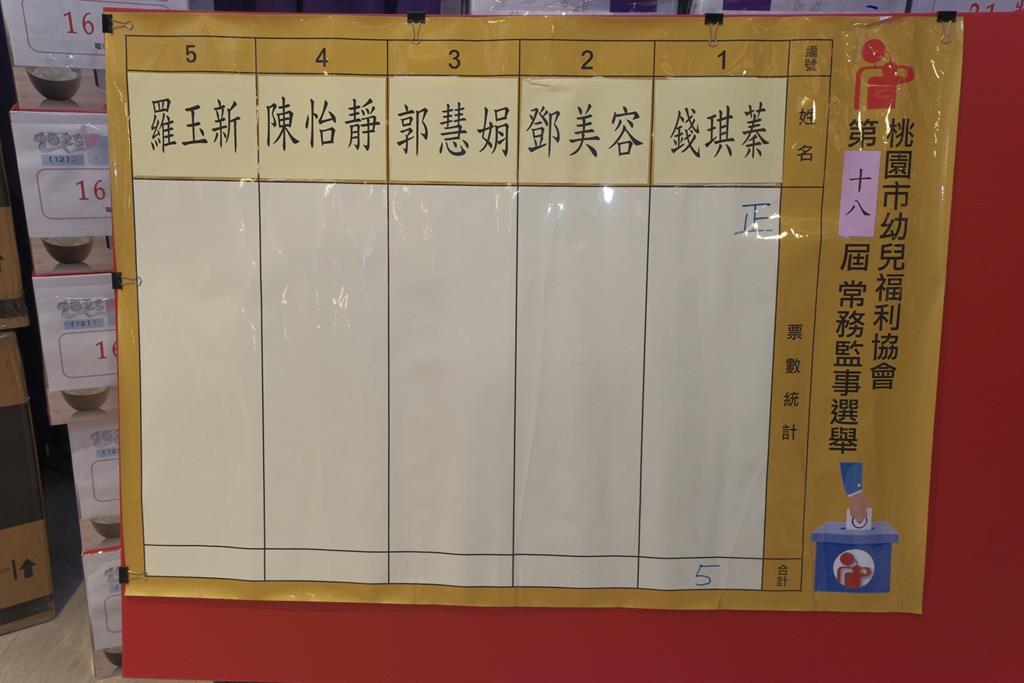 桃園市幼兒福利協會
第十八屆 常務監事選舉
編號 1 2 3 4 5
姓名 錢琪蓁 鄧美容 郭慧娟 陳怡靜 羅玉新
票數統計 正
合計 5
16
16
16